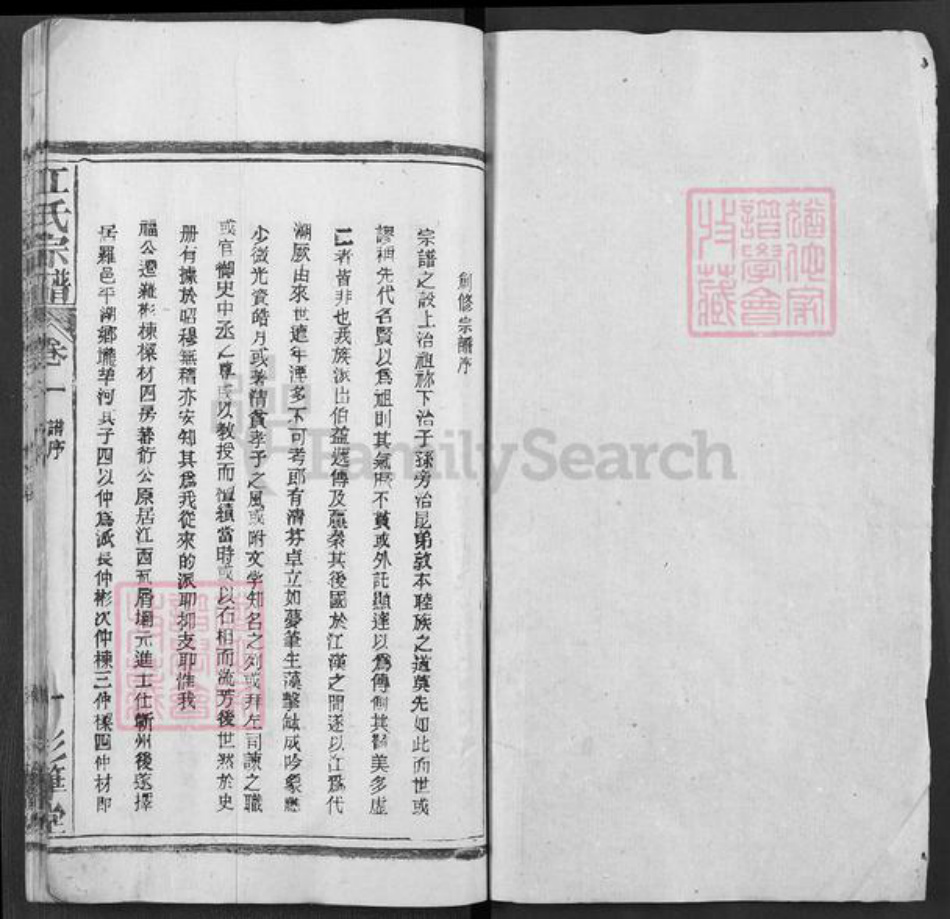 創修宗譜序
宗譜之設上治祖祢下治子孫旁治昆弟敦本睦族之道莫先如此而世或
謬稱先代名賢以爲祖則其氣脈不貫或外託顯達以爲傳則其美多虛
二者皆非也我族派出伯益遞傳及嬴秦其後國於江漢之間遂以江爲代
溯厥由來世遠年湮多不可考卽有清芬卓立如夢筆生藻擊缽成吟象應
少微光資皓月或著清貧孝子之風或附文学知名之列或拜左司諫之職
或官御史中丞之尊或以教授而懋績當時或以右相而流芳後世然於史
册有據於昭穆無稽亦安知其爲我從來的派耶抑支耶惟我
福公遷羅彬棟樑材四房蕃衍公原居江西瓦屑壩元進士仕蘄州後遂擇
居羅邑平湖鄉壠華河其子四以仲爲派長仲彬次仲棟三仲樑四仲材即
江氏宗譜
卷一
譜序
一
彩筆堂
猶他家
譜學會
收藏
猶他家
譜學會
收藏
FamilySearch